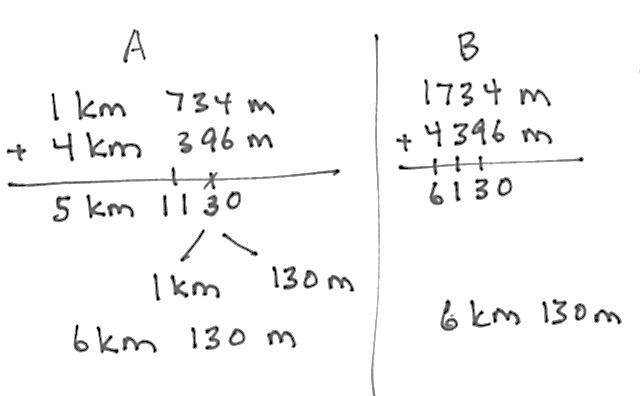 A
1 km 734 m
+ 4 km 396 m
5 km 1130
1 km 130 m
6 km 130 m
B
1734 m
+ 4396 m
6130
6 km 130 m